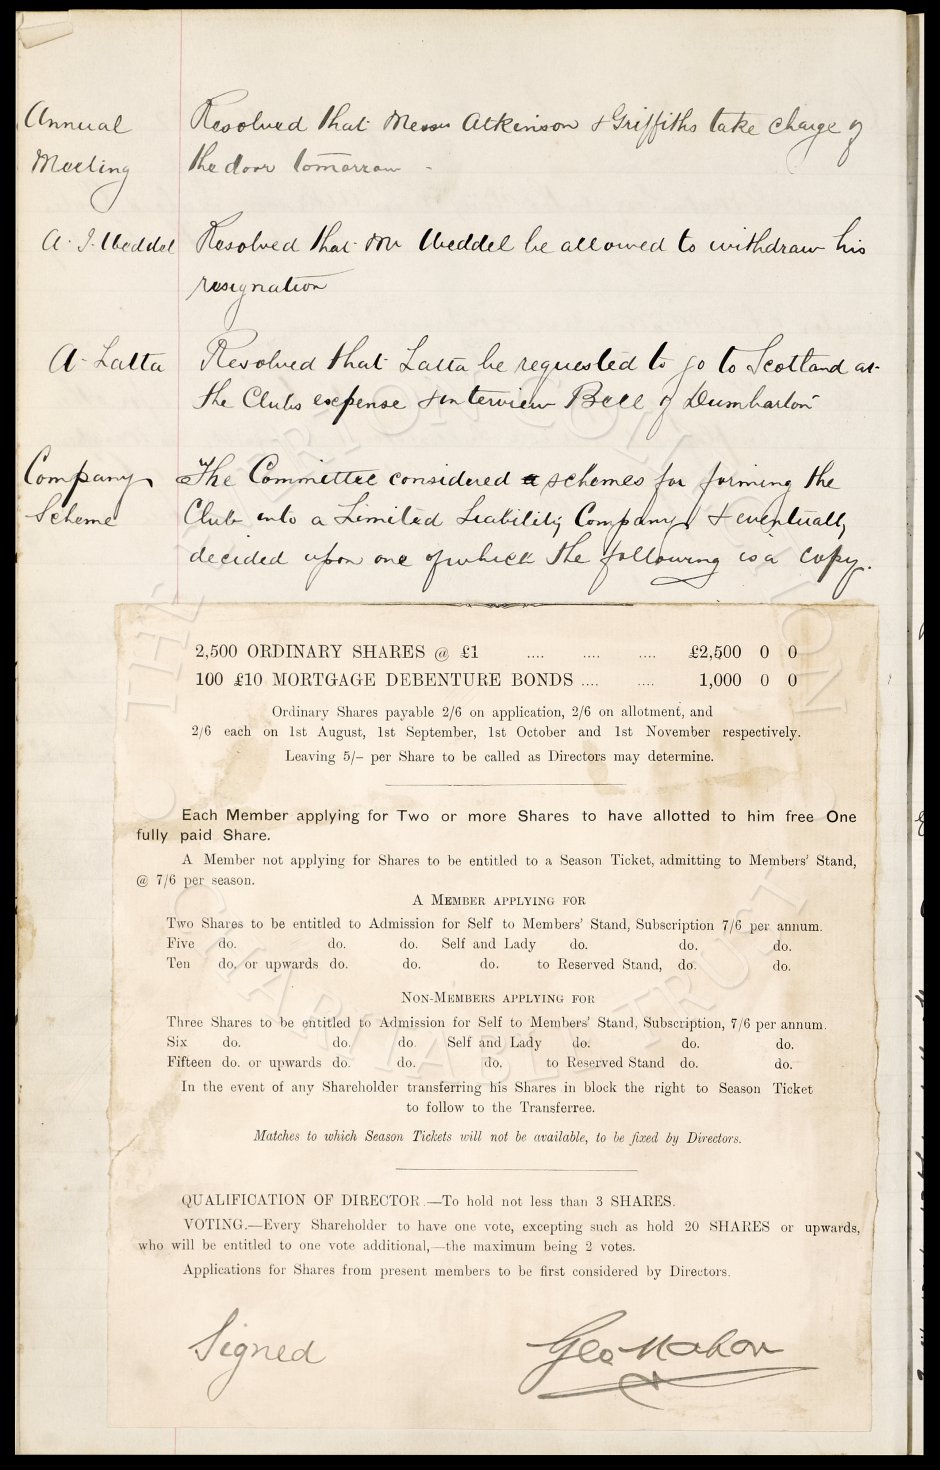 Annual Meeting
Resolved that Messrs Atkinson & Griffiths take charge of
the door tomorrow -
A. I. Weddel
Resolved that Mr Weddel be allowed to withdraw his
resignation
A. Latta
Resolved that Latta be requested to go to Scotland at
the Clubs expense & interview Bell of Dumbarton
Company Scheme
The Committee considered a schemes for forming the
Club into a Limited Liability Company, & eventually
decided upon one of which the following is a copy.
2,500 ORDINARY SHARES @ £1 .... .... .... £2,500 0 0
100 £10 MORTGAGE DEBENTURE BONDS .... .... 1,000 0 0
Ordinary Shares payable 2/6 on application, 2/6 on allotment, and
2/6 each on 1st August, 1st September, 1st October and 1st November respectively.
Leaving 5/- per Share to be called as Directors may determine.
Each Member applying for Two or more Shares to have allotted to him free One
fully paid Share.
A Member not applying for Shares to be entitled to a Season Ticket, admitting to Members' Stand,
@ 7/6 per season.
A MEMBER APPLYING FOR
Two Shares to be entitled to Admission for Self to Members' Stand, Subscription 7/6 per annum.
Five do. do. do. Self and Lady do. do. do.
Ten do. or upwards do. do. do. to Reserved Stand, do. do.
NON-MEMBERS APPLYING FOR
Three Shares to be entitled to Admission for Self to Members' Stand, Subscription, 7/6 per annum.
Six do. do. do. Self and Lady do. do. do.
Fifteen do. or upwards do. do. do. to Reserved Stand do. do.
In the event of any Shareholder transferring his Shares in block the right to Season Ticket
to follow to the Transferree.
Matches to which Season Tickets will not be available, to be fixed by Directors.
QUALIFICATION OF DICECTOR.—To hold not less than 3 SHARES.
VOTING.—Every Shareholder to have one vote, excepting such as hold 20 SHARES or upwards,
who will be entitled to one vote additional,—the maximum being 2 votes.
Applications for Shares from present members to be first considered by Directors.
Signed Geo Mahon
© THE EVERTON COLLECTION
CHARITABLE TRUST